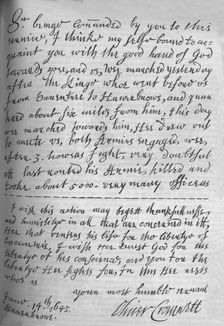 Sr beinge Com̄anded by you to this
service I thinke my selfe bound to ac-
quaint you with the good hand of God
towards you, and us, wee marched yesterday
after the Kinge whoe went before us
from Daventree to Haverbrowe, and quar-
tered about six miles from him, this day
wee marched towards him, Hee drew out
to meete us, both Armies engaged, wee,
after 3. howers fight, very doubtfull
att last routed his Armie, killed and
tooke about 5000. very many officers
I wish this action may begett thankfullnesse
and humilitye in all that are concerned in itt,
Hee that venters his life for the libertye of
his cuntrie, I wish Hee trust God for the
libertye of his conscience, and you for the
libertye Hee fights for, In this Hee rests
whoe is
your most humble servant
Oliver Cromwell
June 14th 1645.
Haverbrowe.